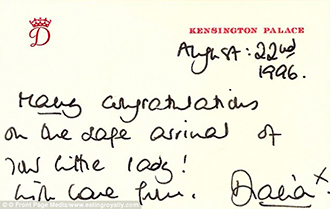 D
KENSINGTON PALACE
August: 22nd
1996.
Many congratulations
on the safe arrival of
your little lady!
with love from. Diana x
© Front Page Media/www.astingroyalty.com